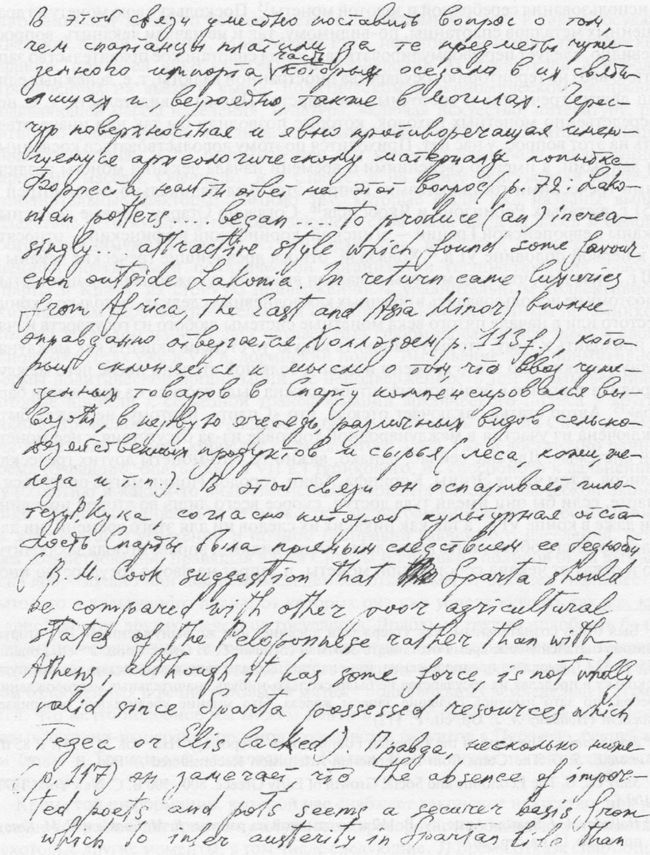 В этой связи уместно поставить вопрос о том
чем спартанцы платили за те предметы чуже-
земного импорта, часть которых оседала в их святи-
лищах и, вероятно, также в могилах. Черес-
чур поверхностная и явно противоречащая имею-
щемуся археологическому материалу попытка
Форреста найти ответ на этот вопрос (p. 72: Lako-
nian potters.... began .... to produce (an) increa-
singly... attractive style which found some favour
even outside Lakonia. In return came luxuries
from Africa, the East and Asia Minor) вполне
оправданно отвергается Холлэдэем (p. 113 f.), кото-
рый склоняется к мысли о том, что ввоз чуже-
земных товаров в Спарту компенсировался вы-
возом, в первую очередь, различных видов сельско-
хозяйственных продуктов и сырья (леса, кожи, же-
леза и т.п.) В этой связи он оспаривает гипо-
тезу Р. Кука, согласно которой культурная отста-
лость Спарты была прямым следствием ее бедности
(R. M. Cook suggestion that Sparta should
be compared with other poor agricultural
states of the Peloponnese rather than with
Athens, although it has some force, is not wholly
valid since Sparta possessed resources which
Tegea or Elis lacked). Правда, несколько ниже
p. 117) он замечает, что the absence of impor-
ted poets and pots seems a securer basis from
which to infer austerity in Spartan life than